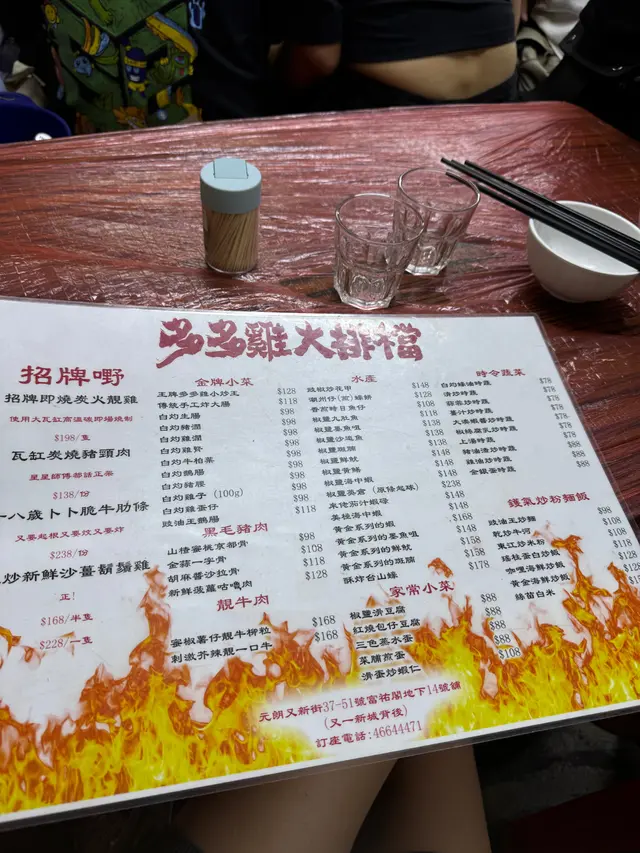 多多雞大排檔
招牌嘢
招牌即燒炭火靚雞
使用大瓦缸高溫碳即場燒制
$198/隻
瓦缸炭燒豬頭肉
星星師傅都話正菜
$138/份
十八歲卜卜脆牛肋條
又要起根又要炆又要炸
$238/份
炒新鮮沙薑鬍鬚雞
正!
$168/半隻
$228/一隻
金牌小菜
王牌多多雞小炒王 $128
傳統手工炸大腸 $118
白灼生腸 $98
白灼豬潤 $98
白灼雞潤 $98
白灼雞腎 $98
白灼牛柏葉 $98
白灼鵝腸 $98
白灼豬腰 $98
白灼雞子 (100g) $98
白灼雞蛋仔 $98
豉油王鵝腸 $118
黑毛豬肉
山楂蜜桃京都骨 $98
金蒜一字骨 $108
胡麻醬沙拉骨 $118
新鮮菠蘿咕嚕肉 $128
靚牛肉
蜜椒薯仔靚牛柳粒 $168
刺激芥辣靚一口牛 $168
水產
豉椒炒花甲 $148
潮煎仔(煎)蠔餅 $108
香煎時日魚仔 $108
椒鹽九肚魚 $138
椒鹽墨魚咀 $138
椒鹽沙追魚
椒鹽斑腩
椒鹽鮮魷
椒鹽青鱔
椒鹽海中蝦
椒鹽奐倉 (原條起球) $238
來佬茄汁蝦碌 $148
美桂海中蝦 $148
黃金系列的蝦 $148
黃金系列的墨魚咀 $148
黃金系列的鮮魷
黃金系列的斑腩 $158
酥炸台山蠔 $178
家常小菜
椒鹽滑豆腐 $88
紅燒包仔豆腐 $88
三色蒸水蛋 $88
菜脯煎蛋 $88
滑蛋炒蝦仁 $108
時令蔬菜
白灼蠔油時蔬 $78
清炒時蔬 $78
蒜蓉炒時蔬 $78
薑汁炒時蔬 $78
大澳蝦醬炒時蔬 $78
椒絲腐乳炒時蔬 $78
上湯時蔬 $88
豬油渣炒時蔬 $88
雞油炒時蔬 $88
金銀蛋時蔬 $88
鑊氣炒粉麵飯
豉油王炒麵 $98
乾炒牛河 $108
東江炒米粉 $108
招牌蛋白炒飯 $118
咖喱海鮮炒飯 $128
黃金海鮮炒飯 $128
絲苗白米
元朗又新街37-51號富祐閣地下14號舖
(又一新城背後)
訂座電話:46644471